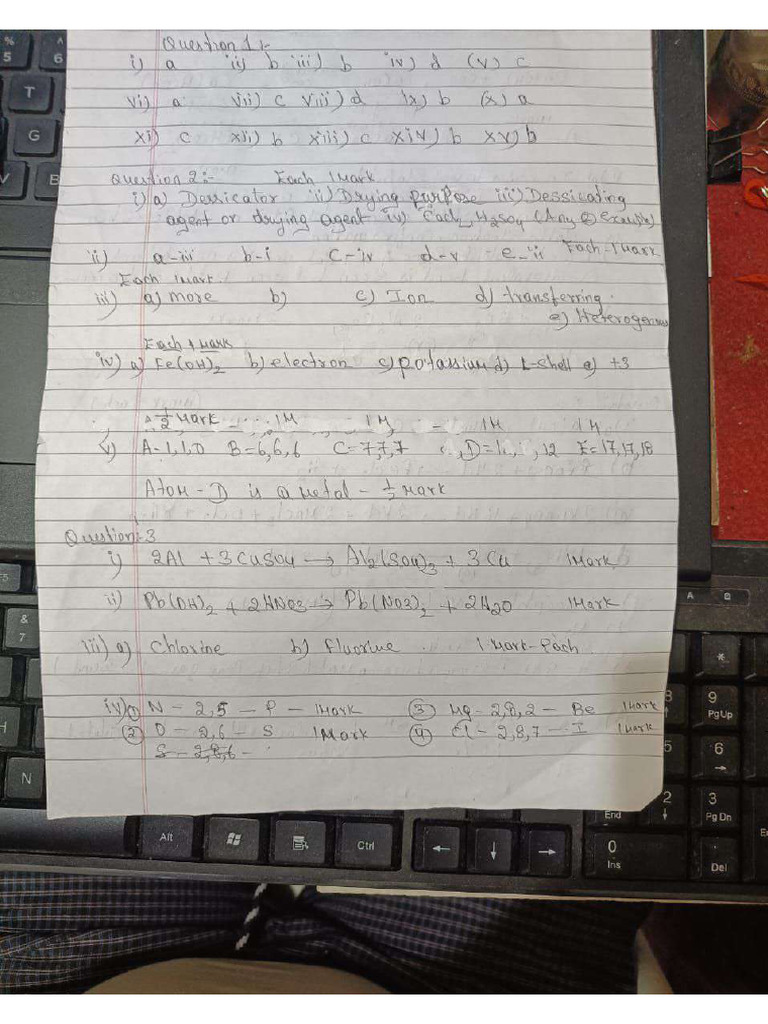 Question 1:-
i) a ii) b iii) b iv) d (v) c
vi) a vii) c viii) d ix) b (x) a
xi) c xii) b xiii) c xiv) b xv) b
Question 2:- Each 1 Mark
i) a) Dessicator ii) Drying purpose iii) Dessicating
agent or drying agent iv) H2SO4 (Any
ii) a-iii b-i c-iv d-v e-ii Each-1 Mark
Each 1 Mark.
iii) a) more b) c) Ion d) transferring.
e) Heterogenous
Each 1 Mark
iv) a) Fe(OH)2 b) electron c) potassium d) L-shell e) +3
1/2 Mark 1M 1M, 1M 1M
v) A-1,1,0 B=6,6,6 C=7,7,7 12 E=17,17,18
Atom-D is a metal - 1/2 Mark
Question:3
i) 2Al + 3CuSO4 → Al2(SO4)3 + 3Cu 1Mark
ii) Pb(OH)2 + 2HNO3 → Pb(NO3)2 + 2H2O 1Mark
iii) a) Chlorine b) Fluorine. 1 Mark-Each
iv) ① N - 2,5 - P - 1Mark ③ Mg-2,8,2 - Be 1Mark
② O - 2,6 - S 1Mark ④ Cl - 2,8,7 - I 1Mark
S - 2,8,6 -
% 5 6
T
G
V B
F5
& 7
H
N
Alt
Ctrl
A
*
9 PgUp
5
6
2
3 PgDn
End
0 Ins
.
Del